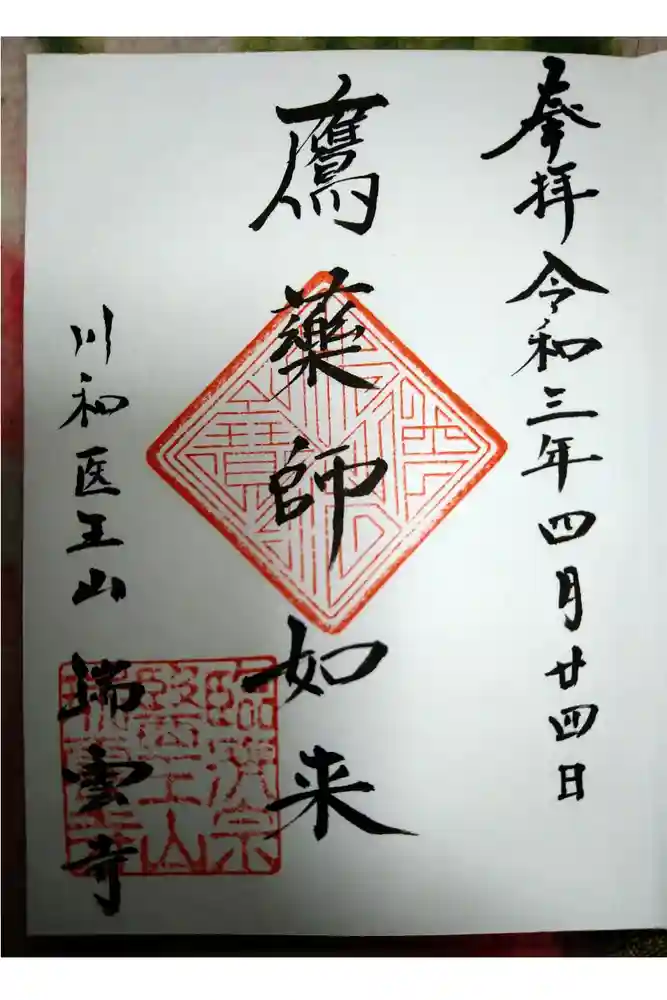 奉拝 令和三年四月廿四日
鷹薬師如来
川和医王山 瑞雲寺
佛法僧寶
臨済宗
醫王山
瑞雲寺